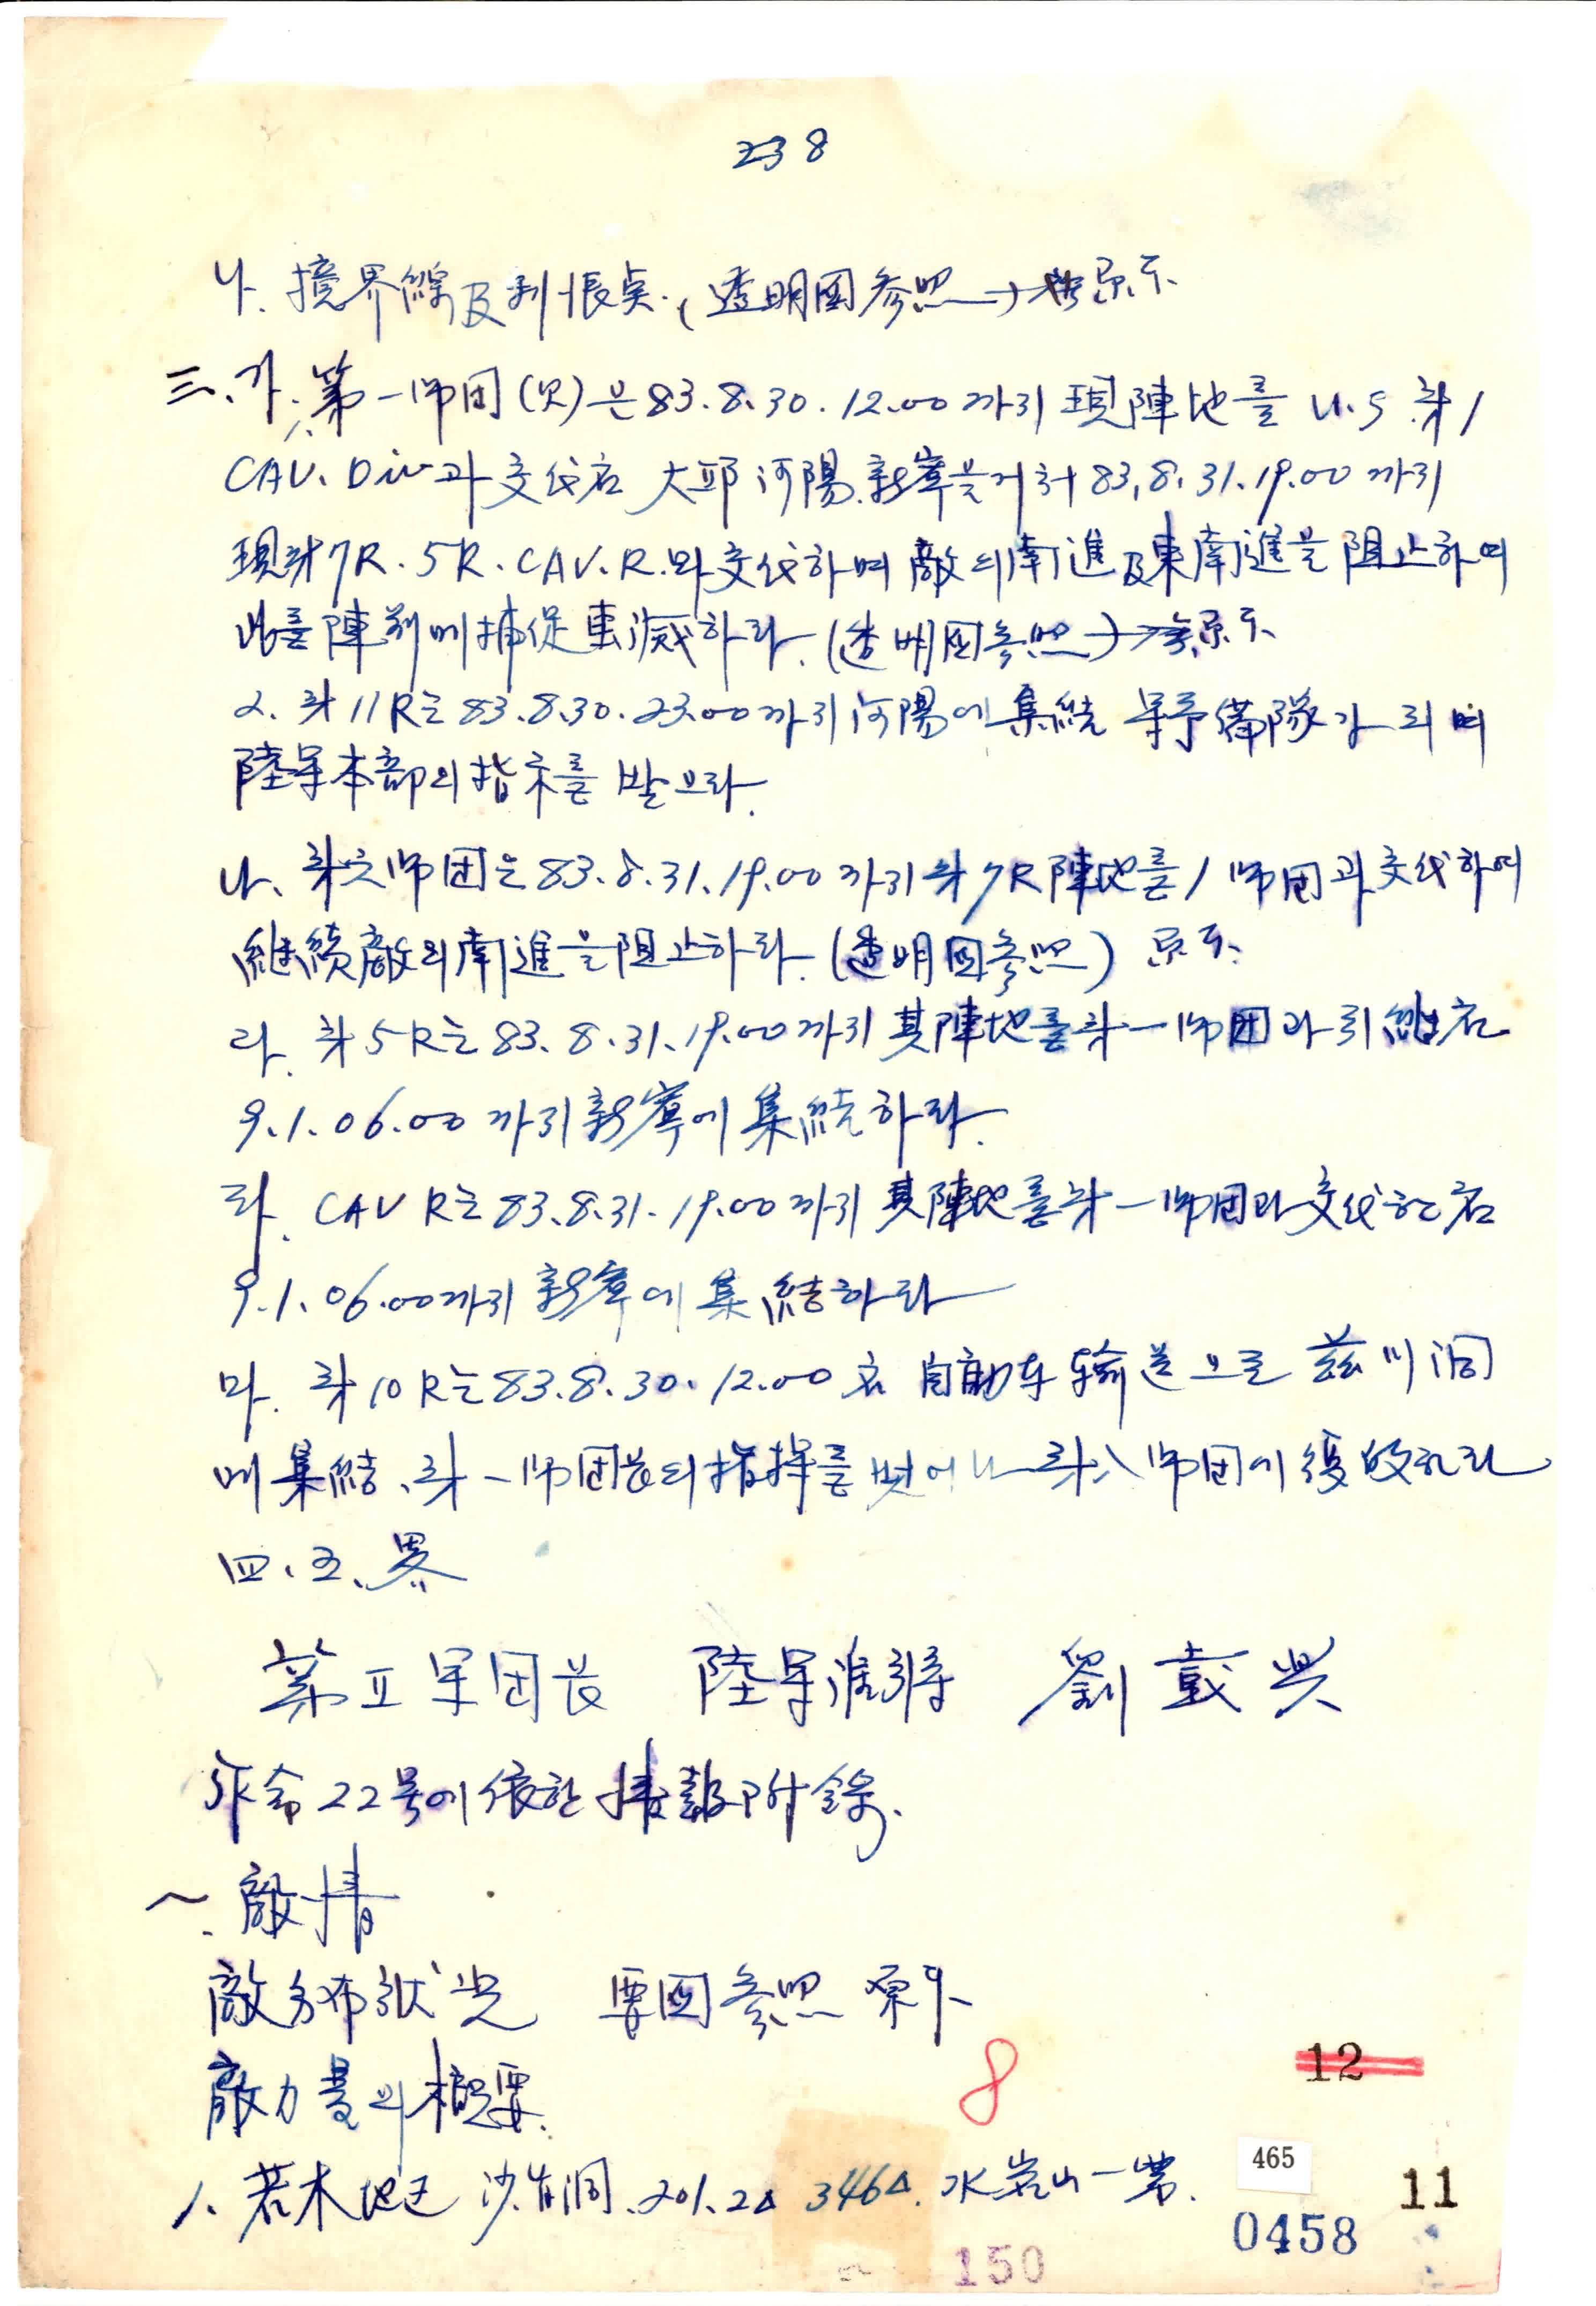 238
나. 境界線及判悵点. (透明圖参照→ 京示
三. 가. 第一师团(欠)은 83.8.30.12.00까지 現陣地를 U.S 第1
CAV. Div과 交代后 大邱 河陽 新寧을거쳐 83.8.31.19.00까지
現第7R. 5R. CAV. R.와 交代하며 敵의 南進及東南進을 阻止하며
此를 陣前에 捕促 하라. (透明図参照)→ 京示
2. 第11R는 83.8.30.23.00까지 河陽에 集結 军予備隊가 되며
陸军本部의 指示를 받으라.
나. 第六师団는 83.8.31.19.00까지 第7R陣地를 1师団과 交代하여
継続敵의 南進을 阻止하라. (透明図参照) 京示
라. 第5R는 83.8.31.19.00까지 其陣地를 第一师団과 引継后
9.1.06.00까지 新寧에 集結하라.
라. CAV R는 83.8.31.19.00까지 其陣地를 第一师団과 交代한 后
9.1.06.00까지 新寧에 集結하라
마. 第10R는 83.8.30.12.00 后 自動车輸送으로 兹川洞
에 集結, 第一师団长의 指揮를 벗어나 第八师団에 復皈하라
四. 五. 畧
第II军团长 陸军准將 劉載興
作命22号에 依한 情報附錄.
一. 敵情
敵分布狀況 要図参照 京示
敵力量의 概要.
1. 若木 沙 洞. 201.2△ 346△. 水岩山一帶.
8
12
465
11
0458
150